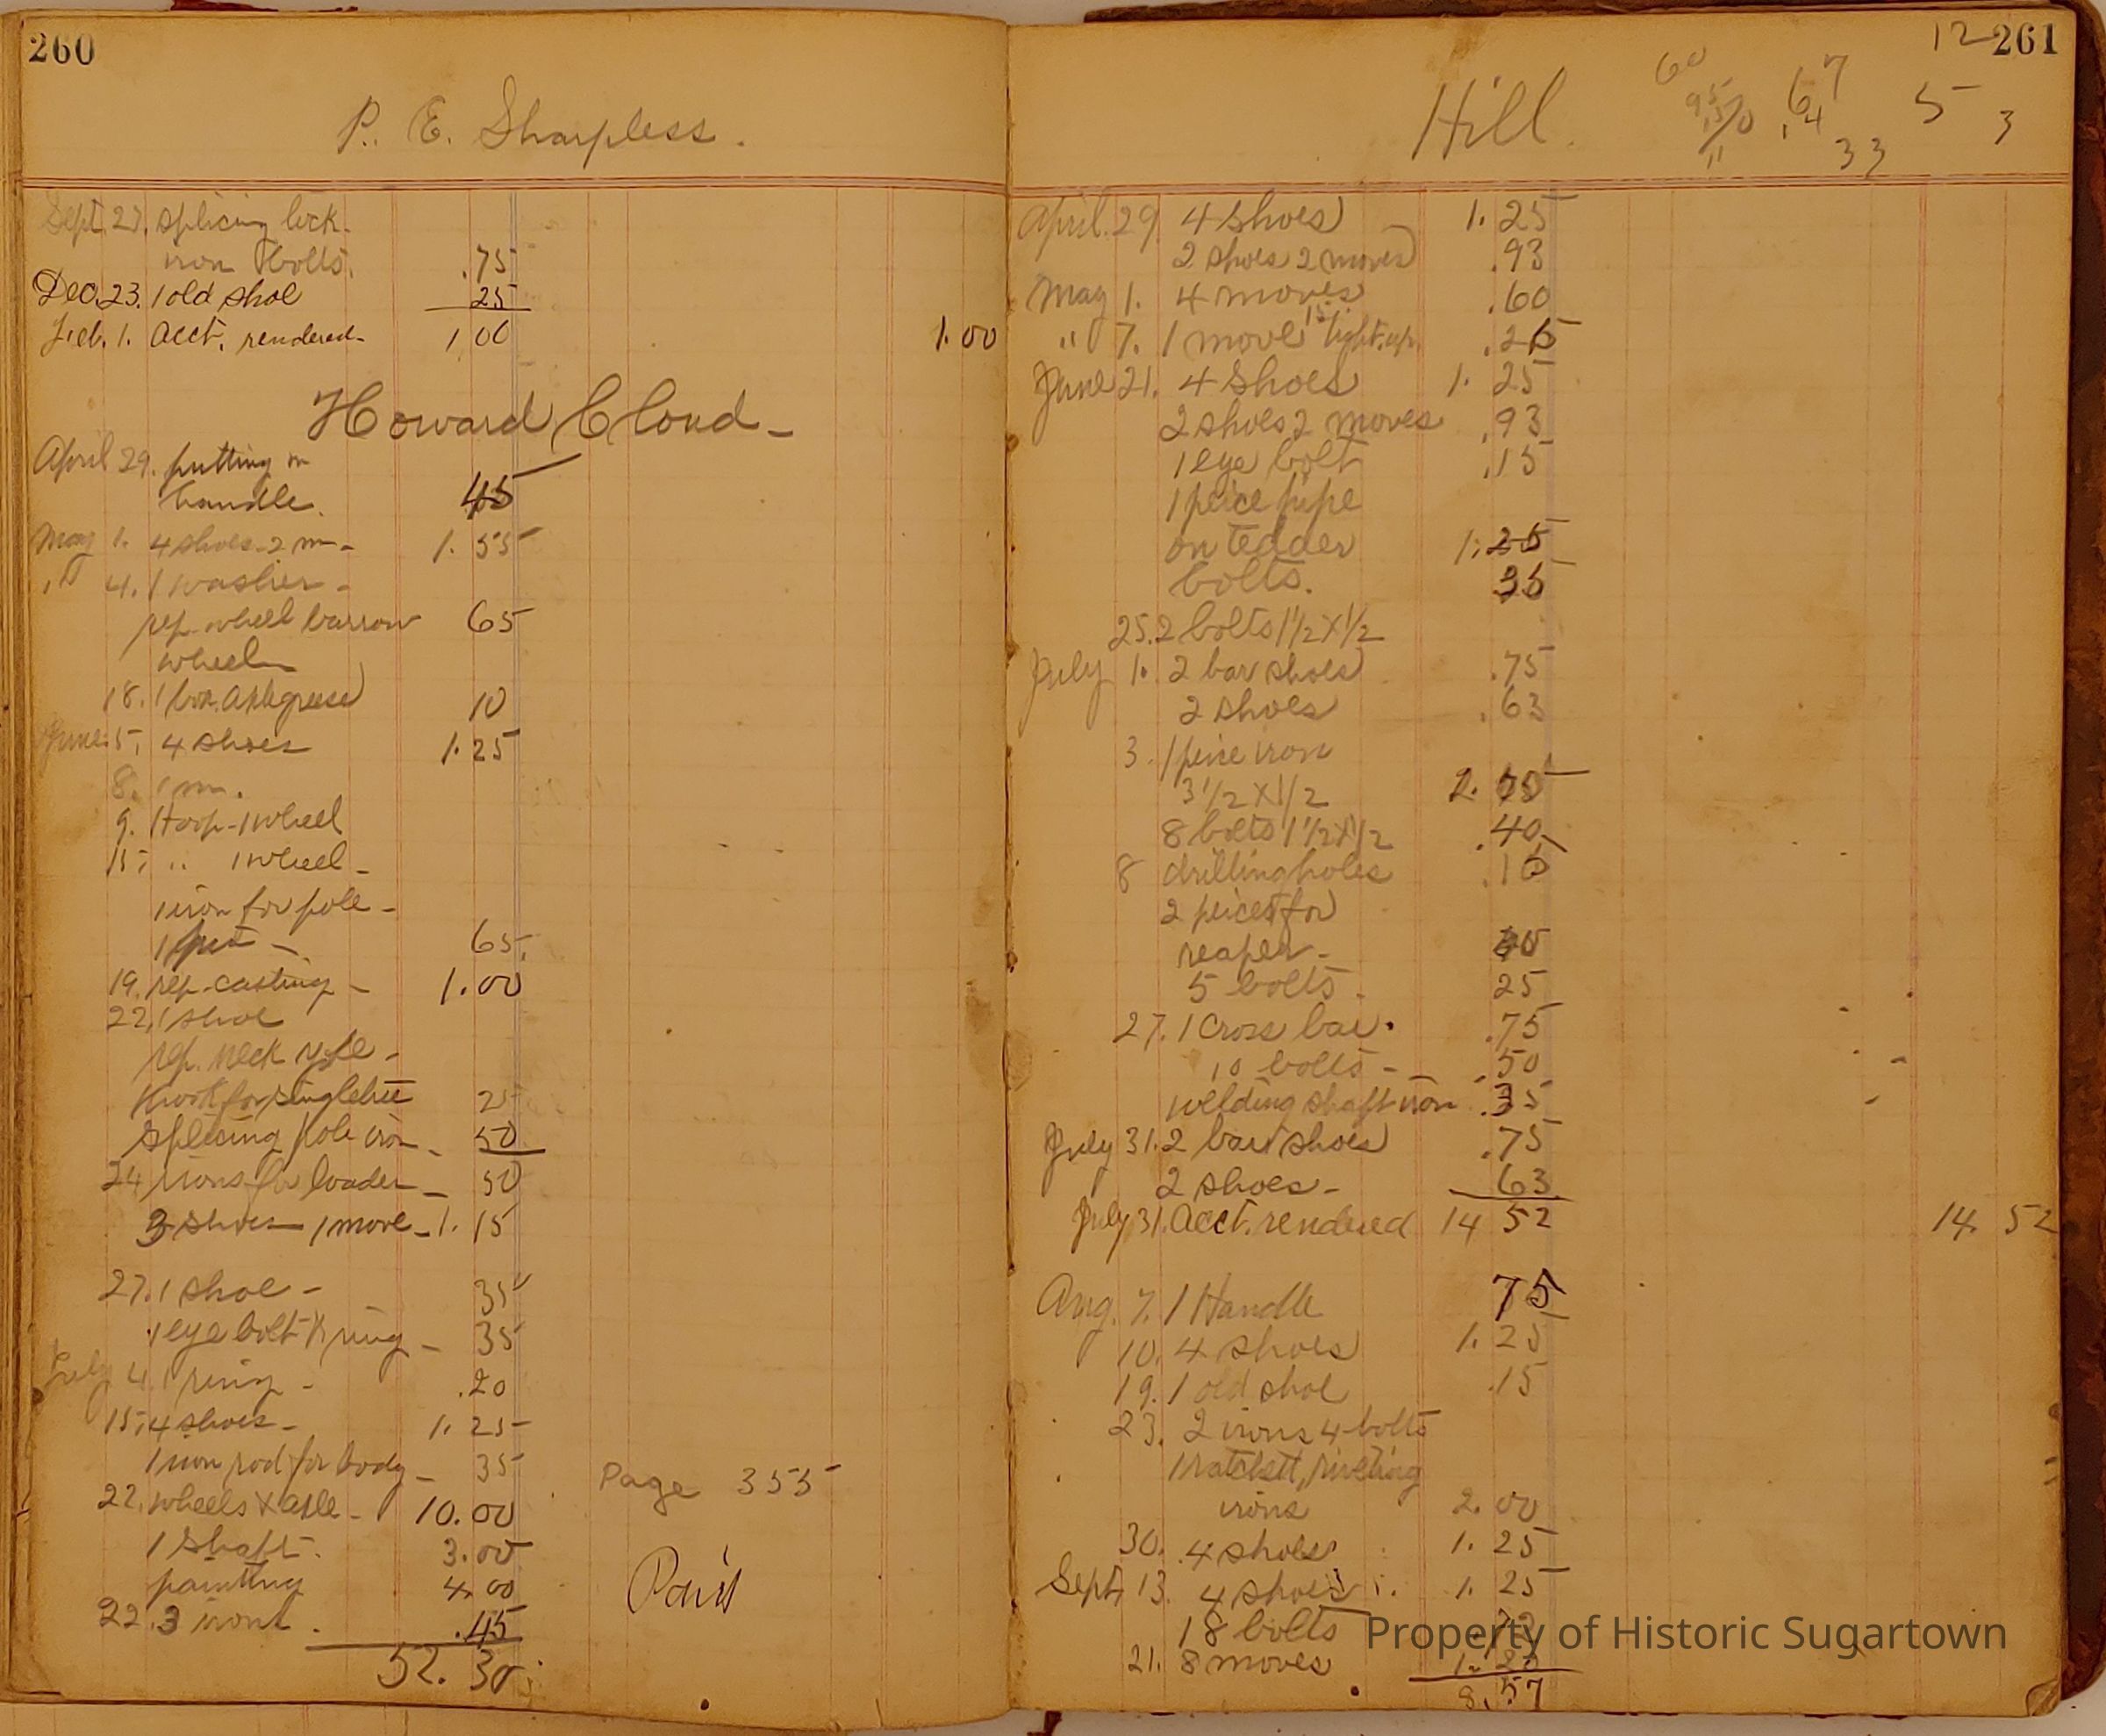 260
P. E. Sharpless.
Sept. 27. splicing lock
iron bolts. .75
Dec. 23. 1 old shoe 25
Feb. 1. acct. rendered- 1.00 1.00
Howard Cloud-
April 29. putting in
handle. 45
May 1. 4 shoes-2 m- 1.55
" 4. 1 washer-
rep. wheel barrow 65
wheel
18. 1 box axle grease 10
June 5, 4 shoes 1.25
8. 1 m.
9. Hoop-1 wheel
15; " 1 wheel-
1 iron for pole-
1 65
19. rep. casting- 1.00
22, 1 shoe
rep. neck yoke-
hook for singletree 25
splicing pole iron- 50
24 irons for loader- 50
3 shoes-1 move- 1.15
27. 1 shoe- 35
1 eye bolt & ring- 35
July 4. 1 ring- .20
15, 4 shoes- 1.25
1 iron rod for body- 35
22. wheels & axle- 10.00
1 shaft. 3.00
painting 4.00
22. 3 irons. .45
52.30
Page 355
Paid
12 261
Hill.
60
95
15/0
11
67
.64
33
5
3
April. 29. 4 shoes 1.25
2 shoes 2 moves .93
May 1. 4 moves .60
" 7. 1 move 15 tight. up. .25
June 21. 4 shoes 1.25
2 shoes 2 moves .93
1 eye bolt .15
1 peice pipe
on tedder 1.25
bolts. 35
25. 2 bolts 1 1/2 x 1/2
July 1. 2 bar shoes .75
2 shoes .63
3. 1 peice iron
3 1/2 x 1/2 2.75
8 bolts 1 1/2 x 1/2 .40
8 drilling holes .15
2 peices for
reaper-
5 bolts. 25
27. 1 cross bar. .75
10 bolts- .50
welding shaft iron .35
July 31. 2 bar shoes .75
2 shoes- 63
July 31. Acct. rendered 14 52 14. 52
Aug. 7. 1 Handle 75
10. 4 shoes 1.25
19. 1 old shoe .15
23. 2 irons 4 bolts
1 ratchett, riveting
irons 2.00
30. 4 shoes 1.25
Sept. 13. 4 shoes 1.25
18 bolts .72
21. 8 moves 1.20
8.57
Property of Historic Sugartown